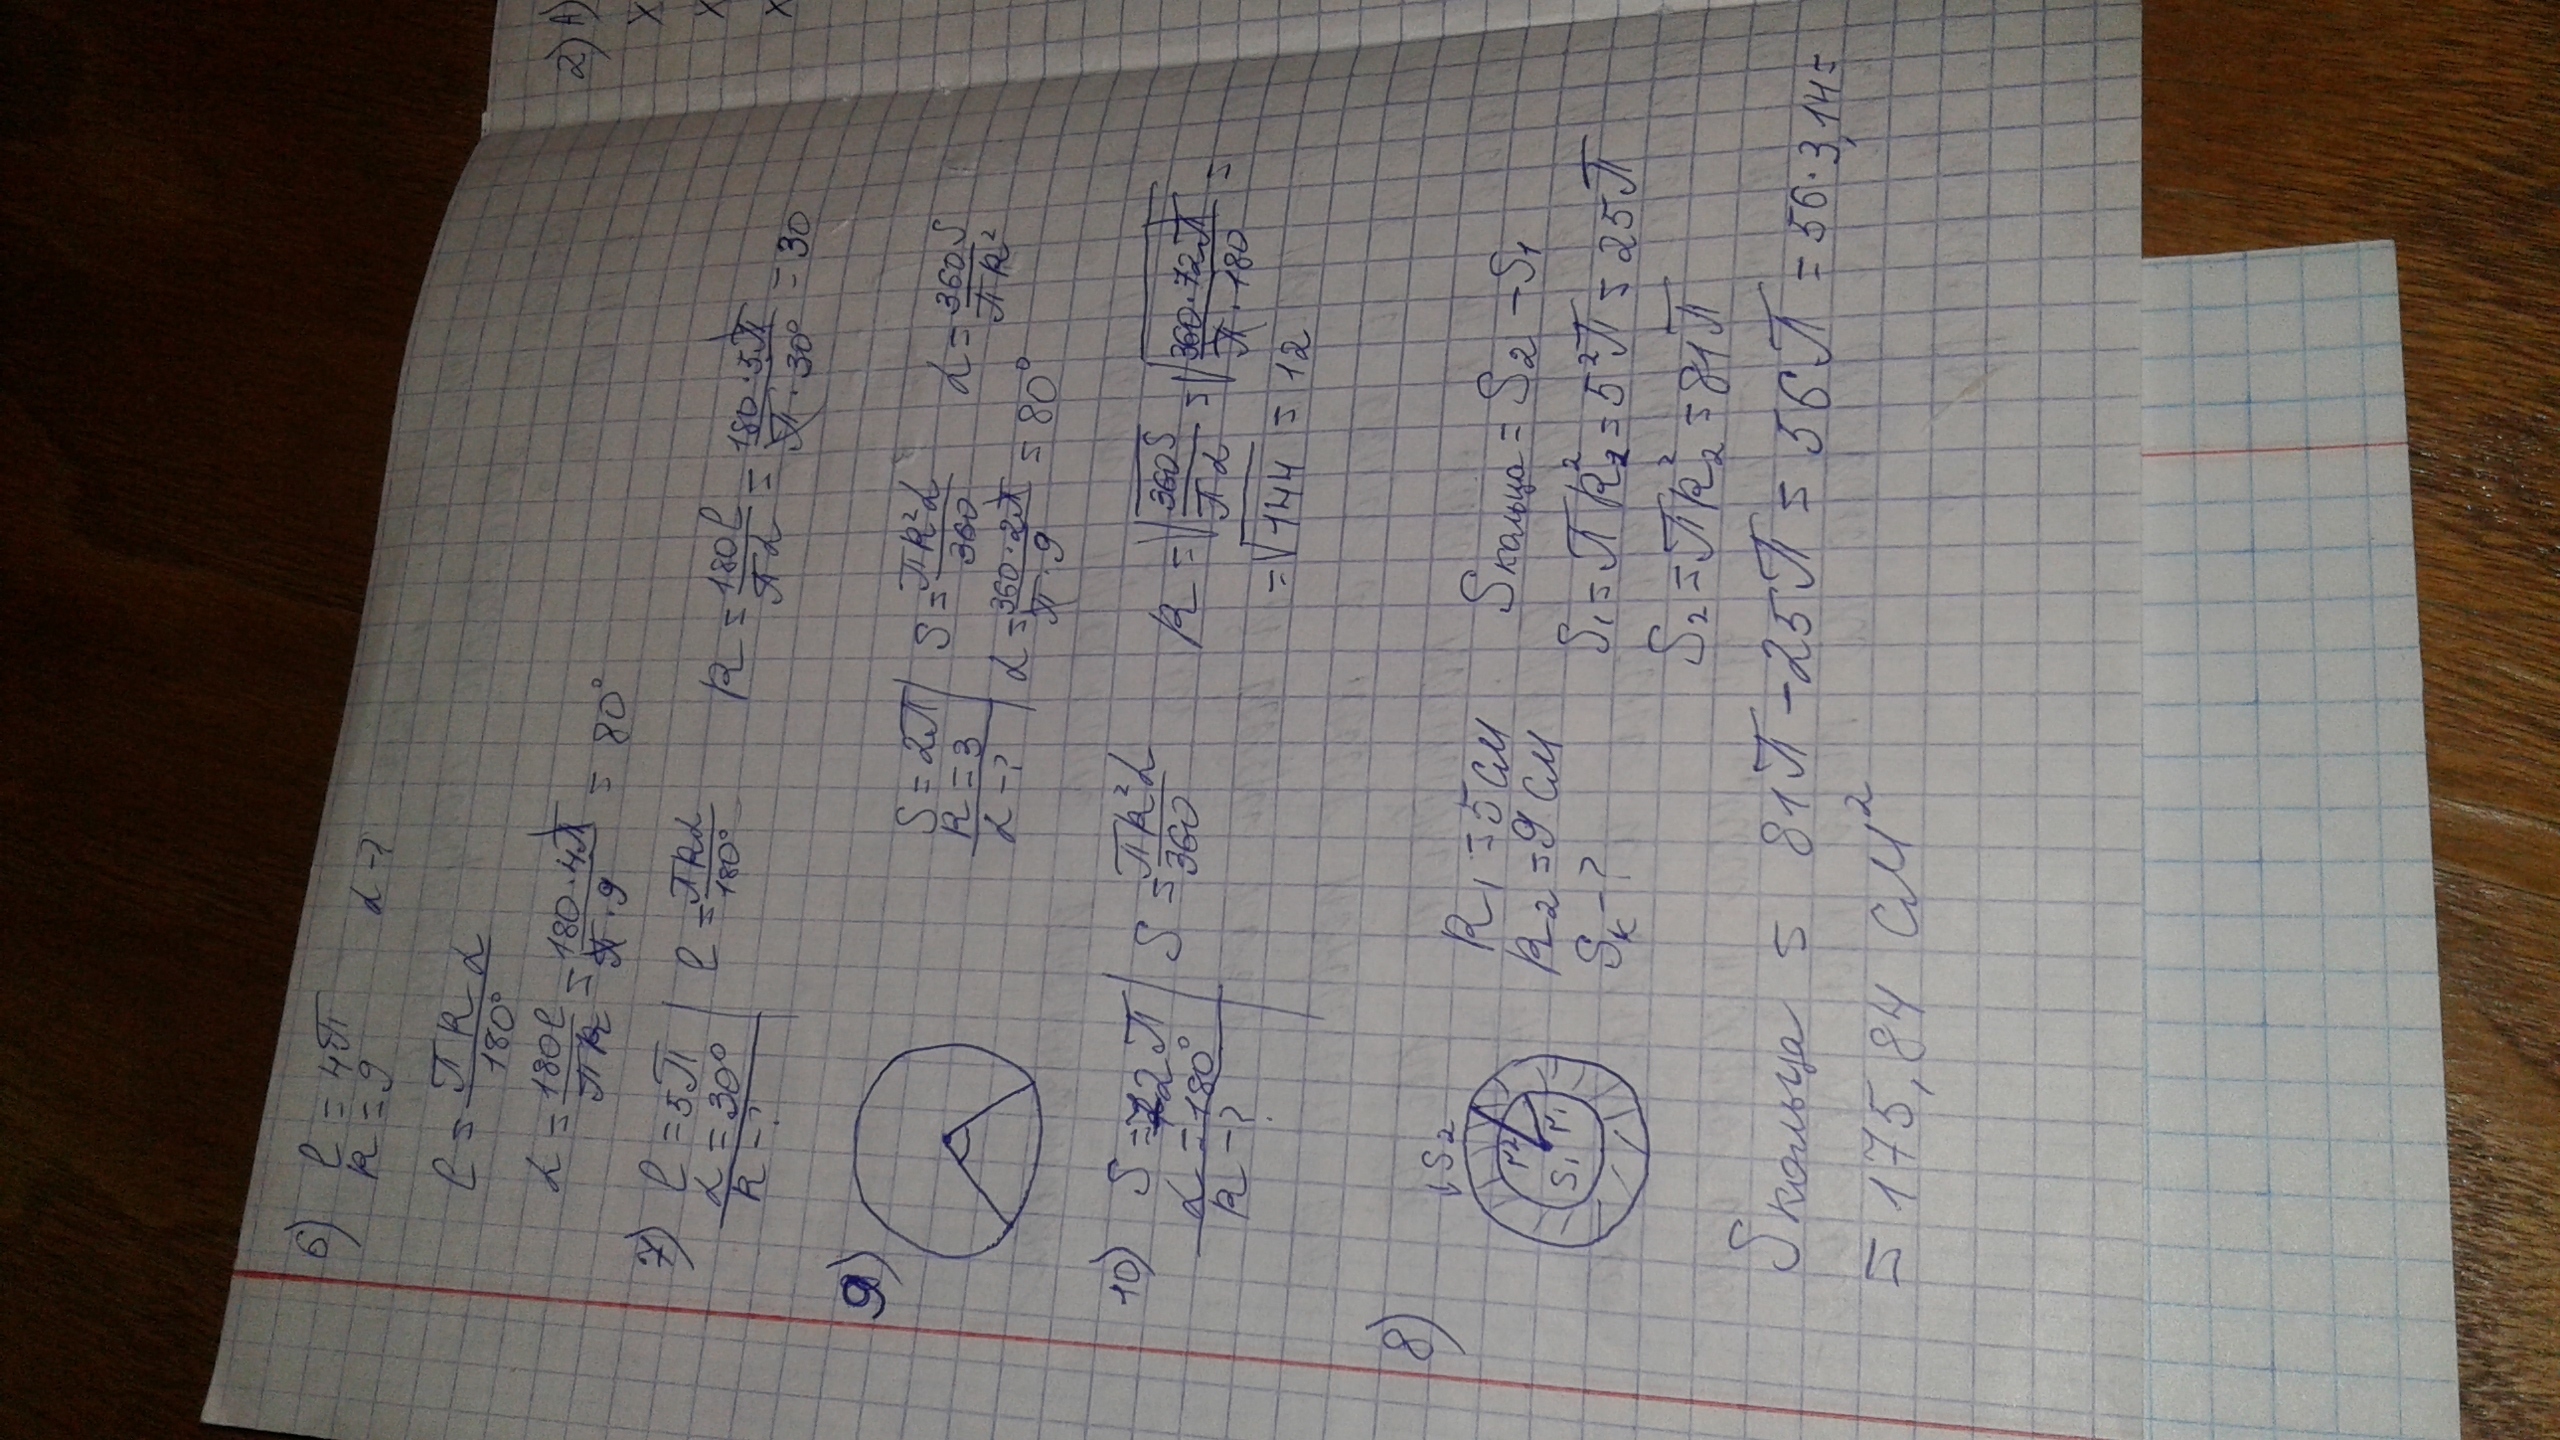 2) А)
х
х
х
6) l = 4π
R = 9 α - ?
l = πRα / 180°
α = 180l / πR = 180·4π / π·9 = 80°
7) l = 5π
α = 30°
R - ?
l = πRα / 180°
R = 180l / πα = 180·5π / π·30° = 30
9) S = 2π
R = 3
α - ?
S = πR²α / 360
α = 360S / πR²
α = 360·2π / π·9 = 80°
10) S = 72π
α = 180°
R - ?
S = πR²α / 360
R = √360S / πα = √360·72π / π·180 =
= √144 = 12
8) ↓S₂
r₂ r₁
S₁
R₁ = 5 см
R₂ = 9 см
Sк - ?
Sкольца = S₂ - S₁
S₁ = πR₁² = 5²π = 25π
S₂ = πR₂² = 81π
Sкольца = 81π - 25π = 56π = 56·3,14 =
= 175,84 см²